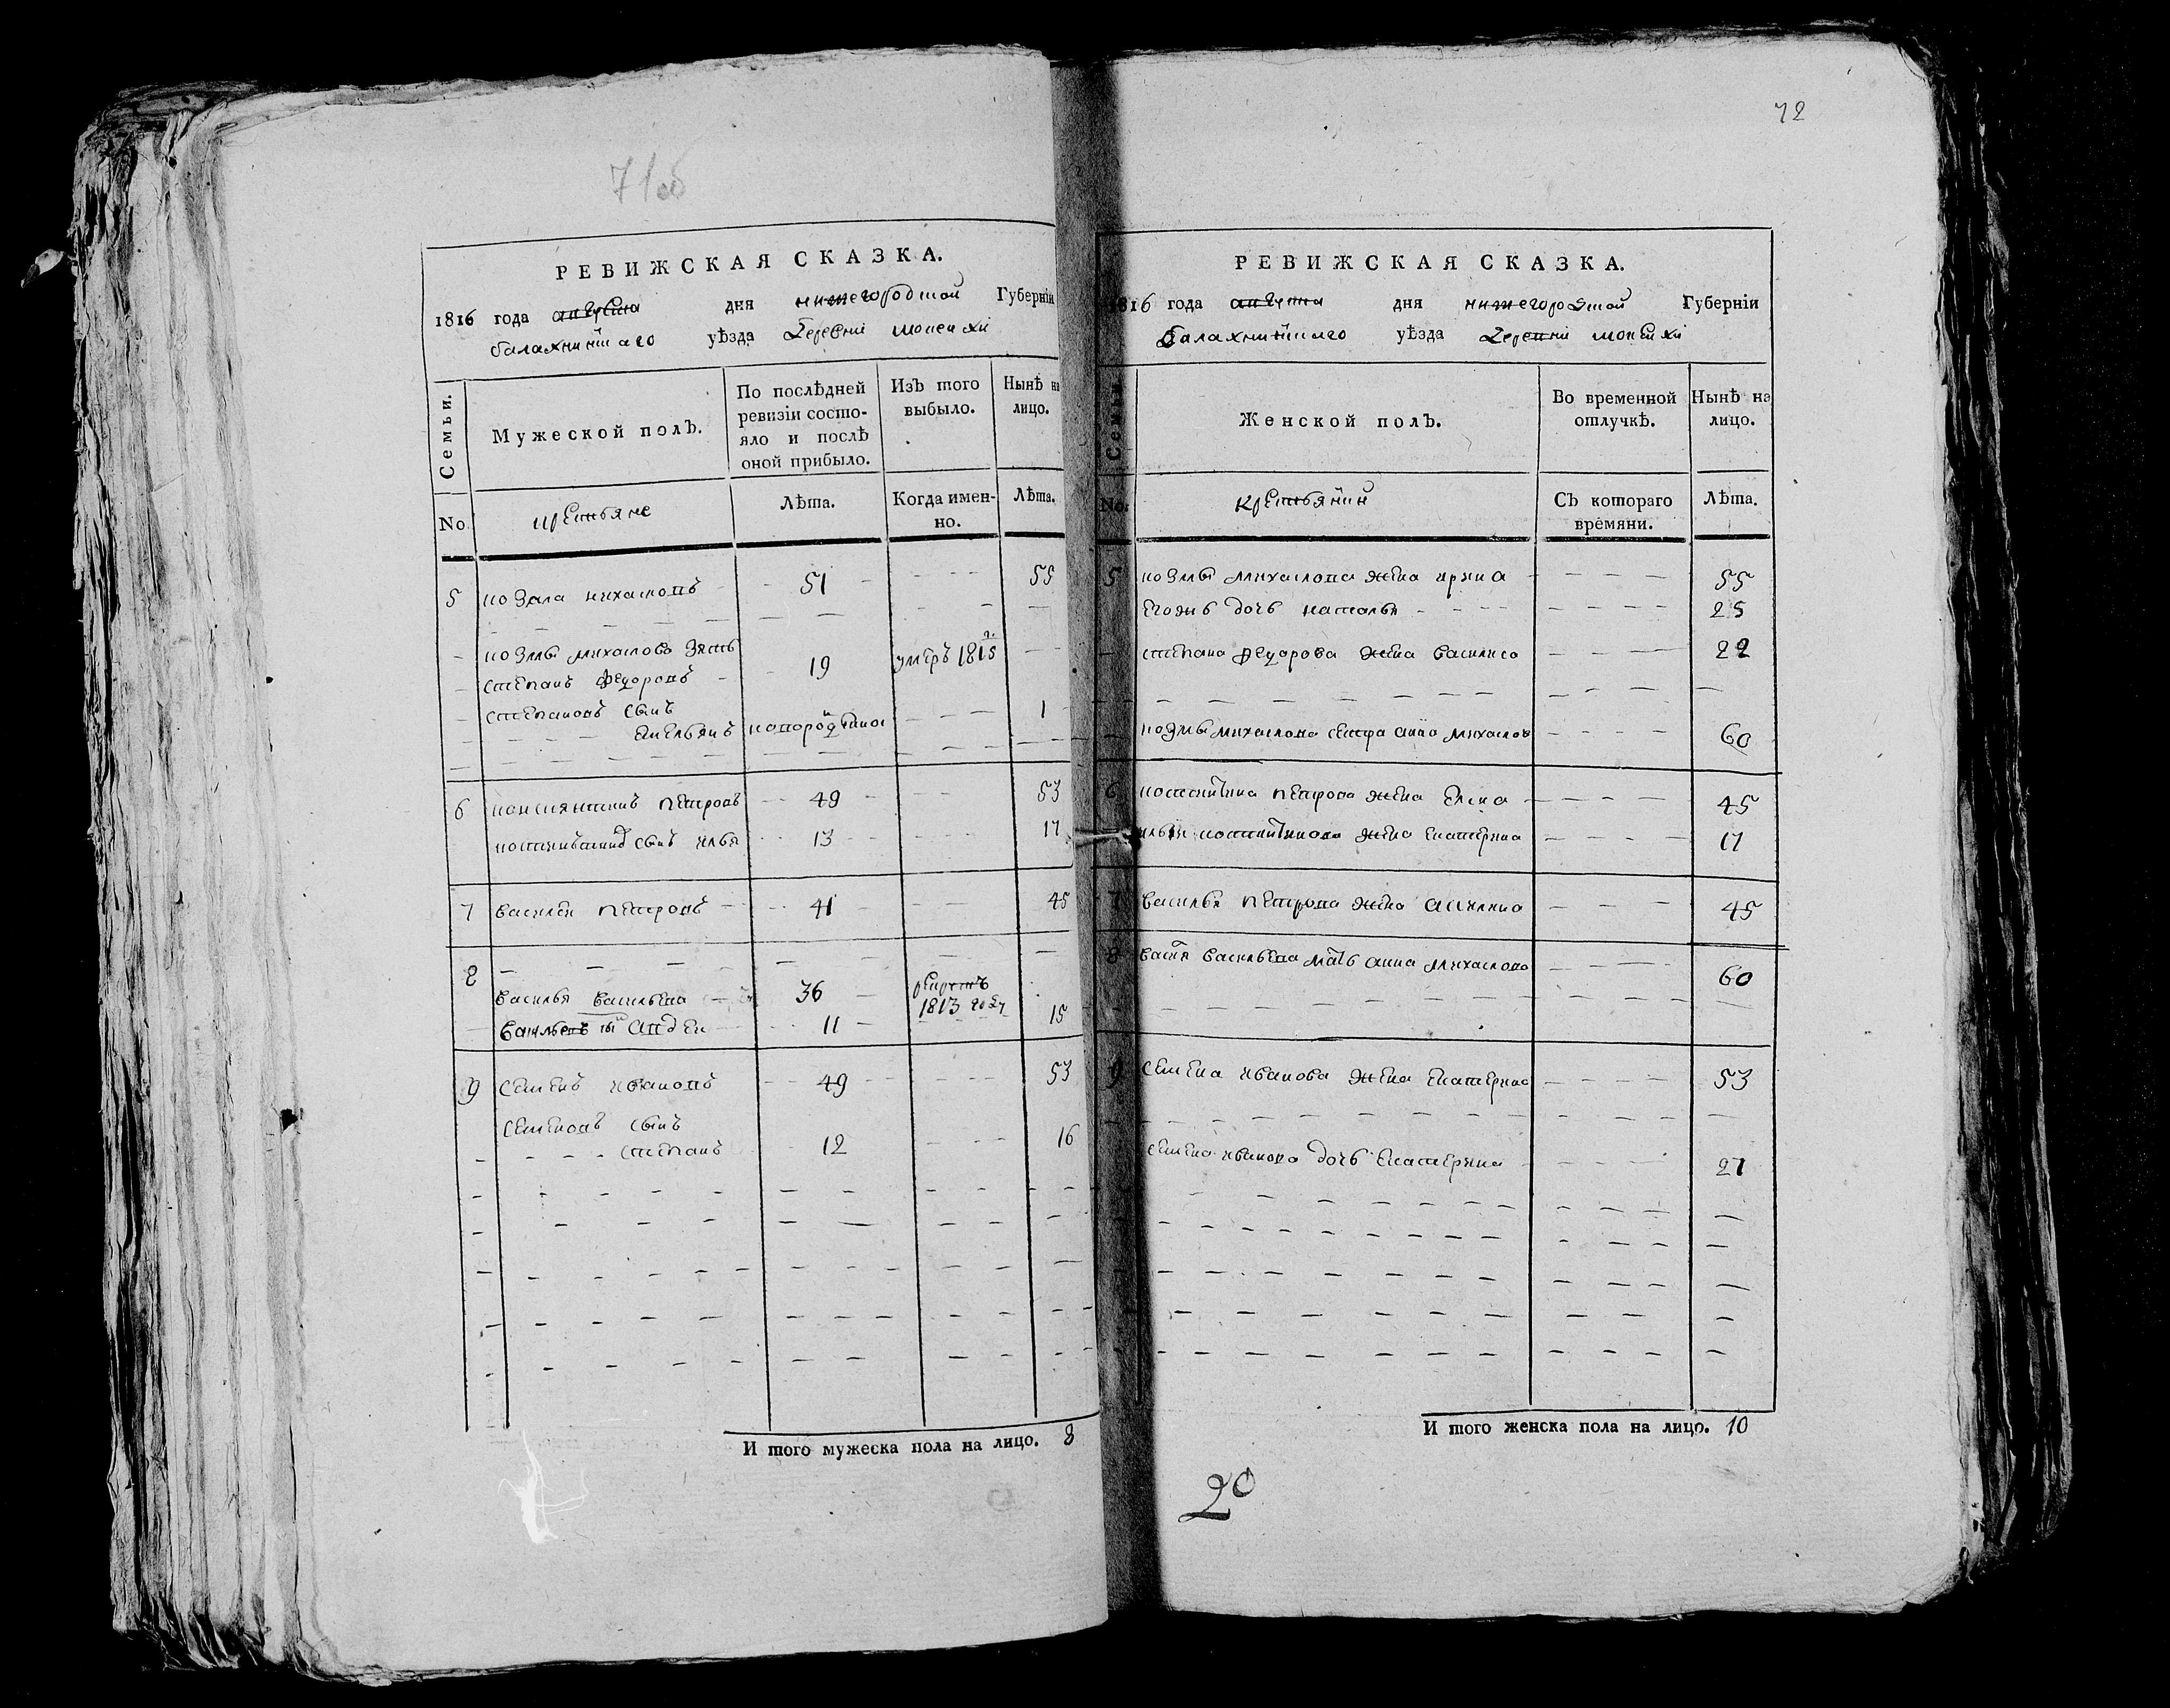 71об
РЕВИЖСКАЯ СКАЗКА.
1816 года августа дня нижегородской Губерніи
балахнинскаго уѣзда деревни
Семьи.
Мужеской полъ.
По послѣдней ревизіи состояло и послѣ оной прибыло.
Изъ того выбыло.
Нынѣ на лицо.
No
крестьяне
Лѣта.
Когда именно.
Лѣта.
5 козма михаиловъ 51 55
козмы михаилова зять
степанъ федоровъ 19 умеръ 1815
степановъ сынъ
емельянъ новорожденной 1
6 констянтинъ петровъ 49 53
сынъ илья 13 17
7 василеи петровъ 41 45
8
василья васильева 36 рекрутъ 1813 году
васильевъ авдеи 11 15
9 семенъ ивановъ 49 53
семеновъ сынъ
степанъ 12 16
И того мужеска пола на лицо. 8
72
РЕВИЖСКАЯ СКАЗКА.
1816 года августа дня нижегородской Губерніи
балахнинскаго уѣзда деревни
Семьи
Женской полъ.
Во временной отлучкѣ.
Нынѣ на лицо.
No.
Съ котораго времяни.
Лѣта.
5 козмы михаилова жена ирина 55
егожъ дочь наталья 25
степана федорова жена василиса 22
козмы михаилова сестра анна михаилов 60
6 костентина петрова жена елена 45
ильи костентинова жена екатерина 17
7 василья петрова жена акилина 45
8 васильева мать анна михаилова 60
9 семена иванова жена екатерина 53
семена иванова дочь екатерина 27
И того женска пола на лицо. 10
20